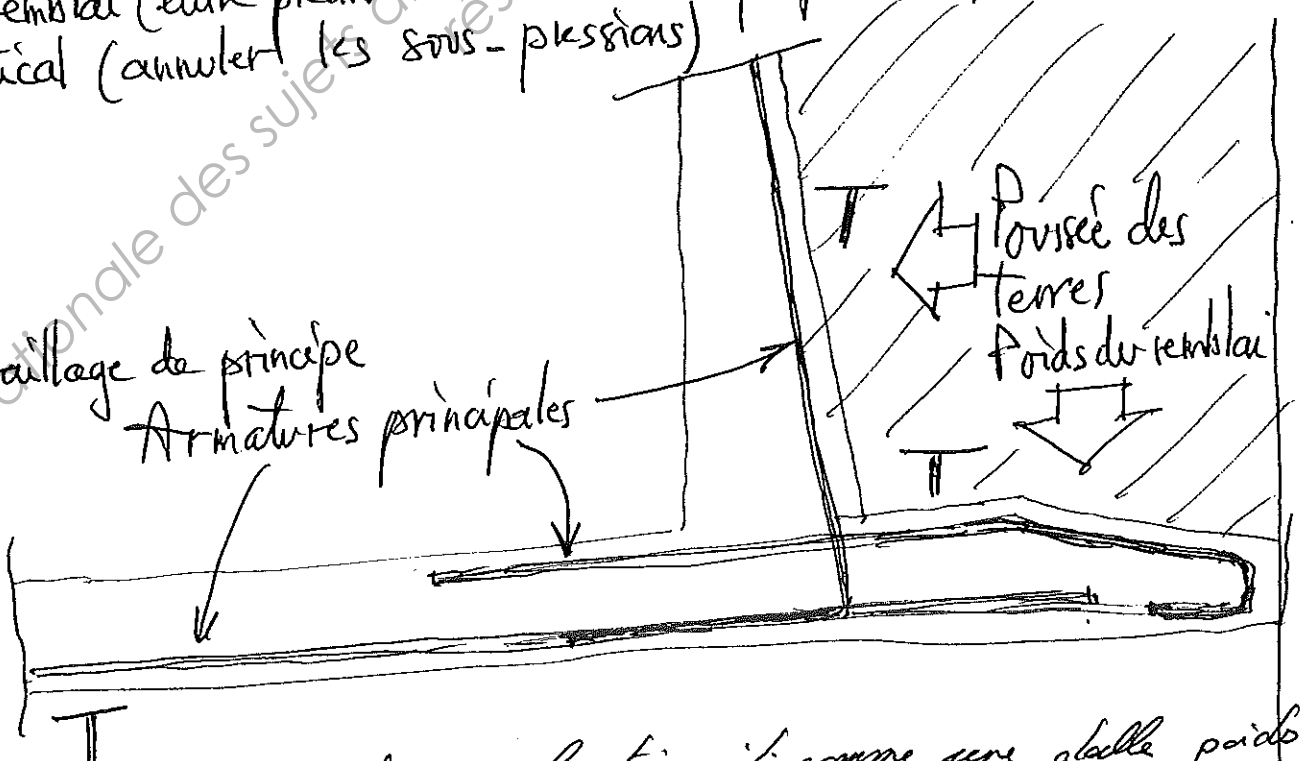 remblai (
ical (annuler les sous-pressions)
nationale des sujets d
res
T
Poussée des
terres
Poids du remblai
aillage de principe
Armatures principales
T
T
comme une dalle poids